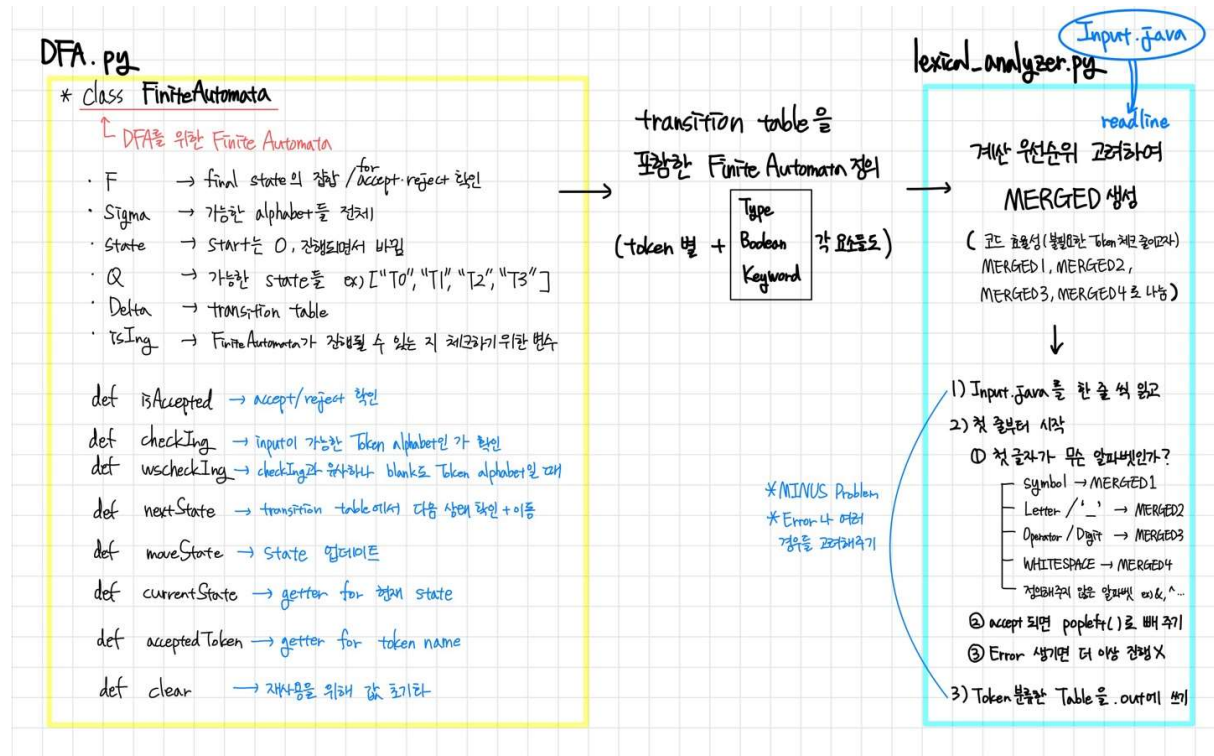 DFA.py
* class FiniteAutomata
DFA를 위한 Finite Automata
· F → final state의 집합 / for accept·reject 확인
· Sigma → 가능한 alphabet들 전체
· state → start는 0, 진행되면서 바뀜
· Q → 가능한 state들 ex) ["T0", "T1", "T2", "T3"]
· Delta → transition table
· isIng → Finite Automata가 진행될 수 있는 지 체크하기 위한 변수
def isAccepted → accept/reject 확인
def checkIng → input이 가능한 Token alphabet인가 확인
def wscheckIng → checkIng과 유사하나 blank도 Token alphabet일 때
def nextState → transition table에서 다음 상태 확인 + 이동
def moveState → state 업데이트
def currentState → getter for 현재 state
def acceptedToken → getter for token name
def clear → 재사용을 위해 값 초기화
→
transition table을
포함한 Finite Automata 정의
(token 별 + Type Boolean Keyword 각 요소들도)
→
Input.java
lexical_analyzer.py
readline
계산 우선순위 고려하여
MERGED 생성
( 코드 효율성 (불필요한 Token 체크 줄이고자)
MERGED1, MERGED2,
MERGED3, MERGED4로 나눔 )
↓
1) Input.java를 한 줄 씩 읽고
2) 첫 줄부터 시작
① 첫 글자가 무슨 알파벳인가?
symbol → MERGED1
Letter / '_' → MERGED2
Operator / Digit → MERGED3
WHITESPACE → MERGED4
정의해주지 않은 알파벳 ex) &, ^ ...
② accept 되면 popleft()로 빼 주기
③ Error 생기면 더 이상 진행 X
3) Token 분류한 Table을 .out에 쓰기
* MINUS Problem
* Error나 여러
경우들 고려해주기